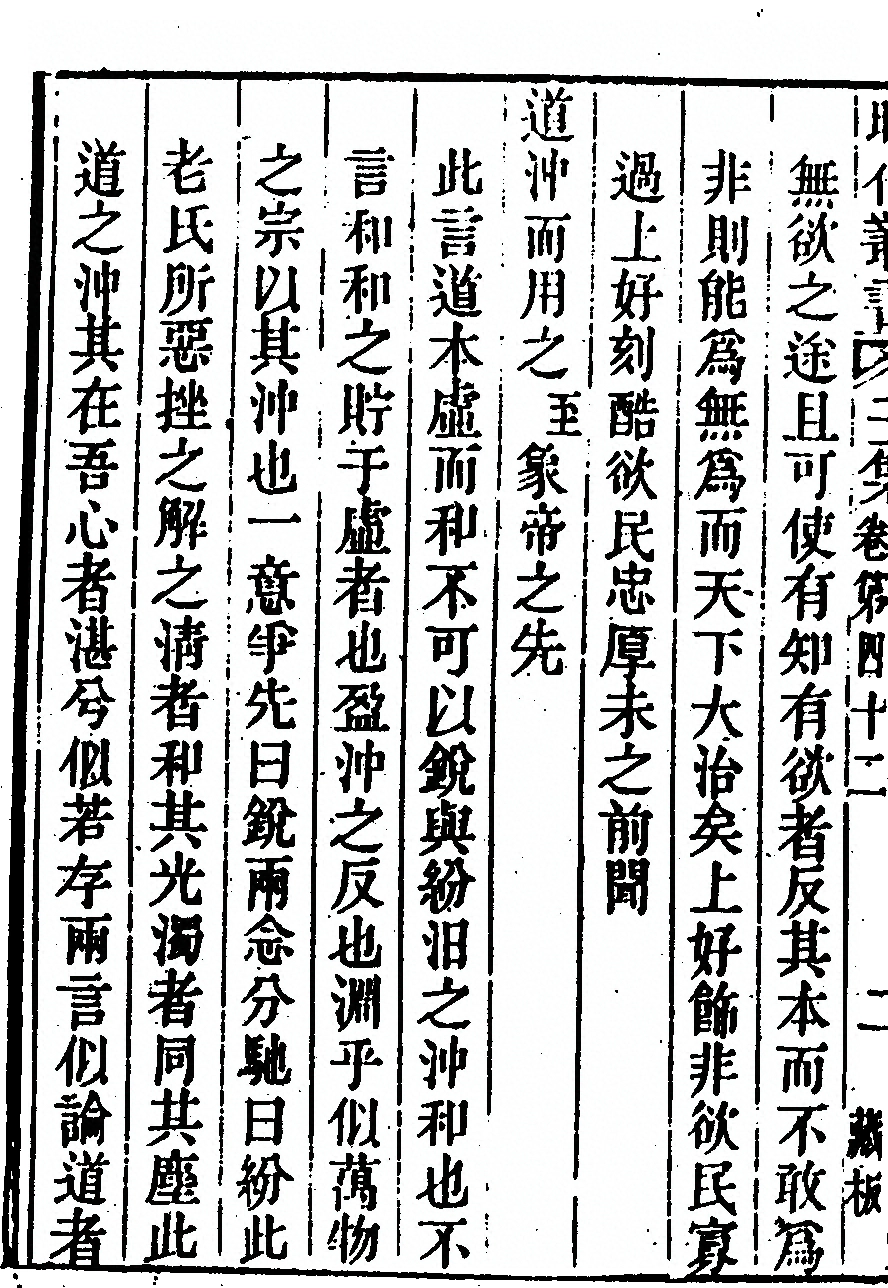 昭代叢書 二集卷第四十二 二 藏板
無欲之途且可使有知有欲者反其本而不敢爲
非則能爲無爲而天下大治矣上好飾非欲民寡
過上好刻酷欲民忠厚未之前聞
道沖而用之 至 象帝之先
此言道本虛而和不可以銳與紛汨之沖和也不
言和和之貯于虛者也盈沖之反也淵乎似萬物
之宗以其沖也一意爭先曰銳兩念分馳曰紛此
老氏所惡挫之解之清者和其光濁者同其塵此
道之沖其在吾心者湛兮似若存兩言似論道者